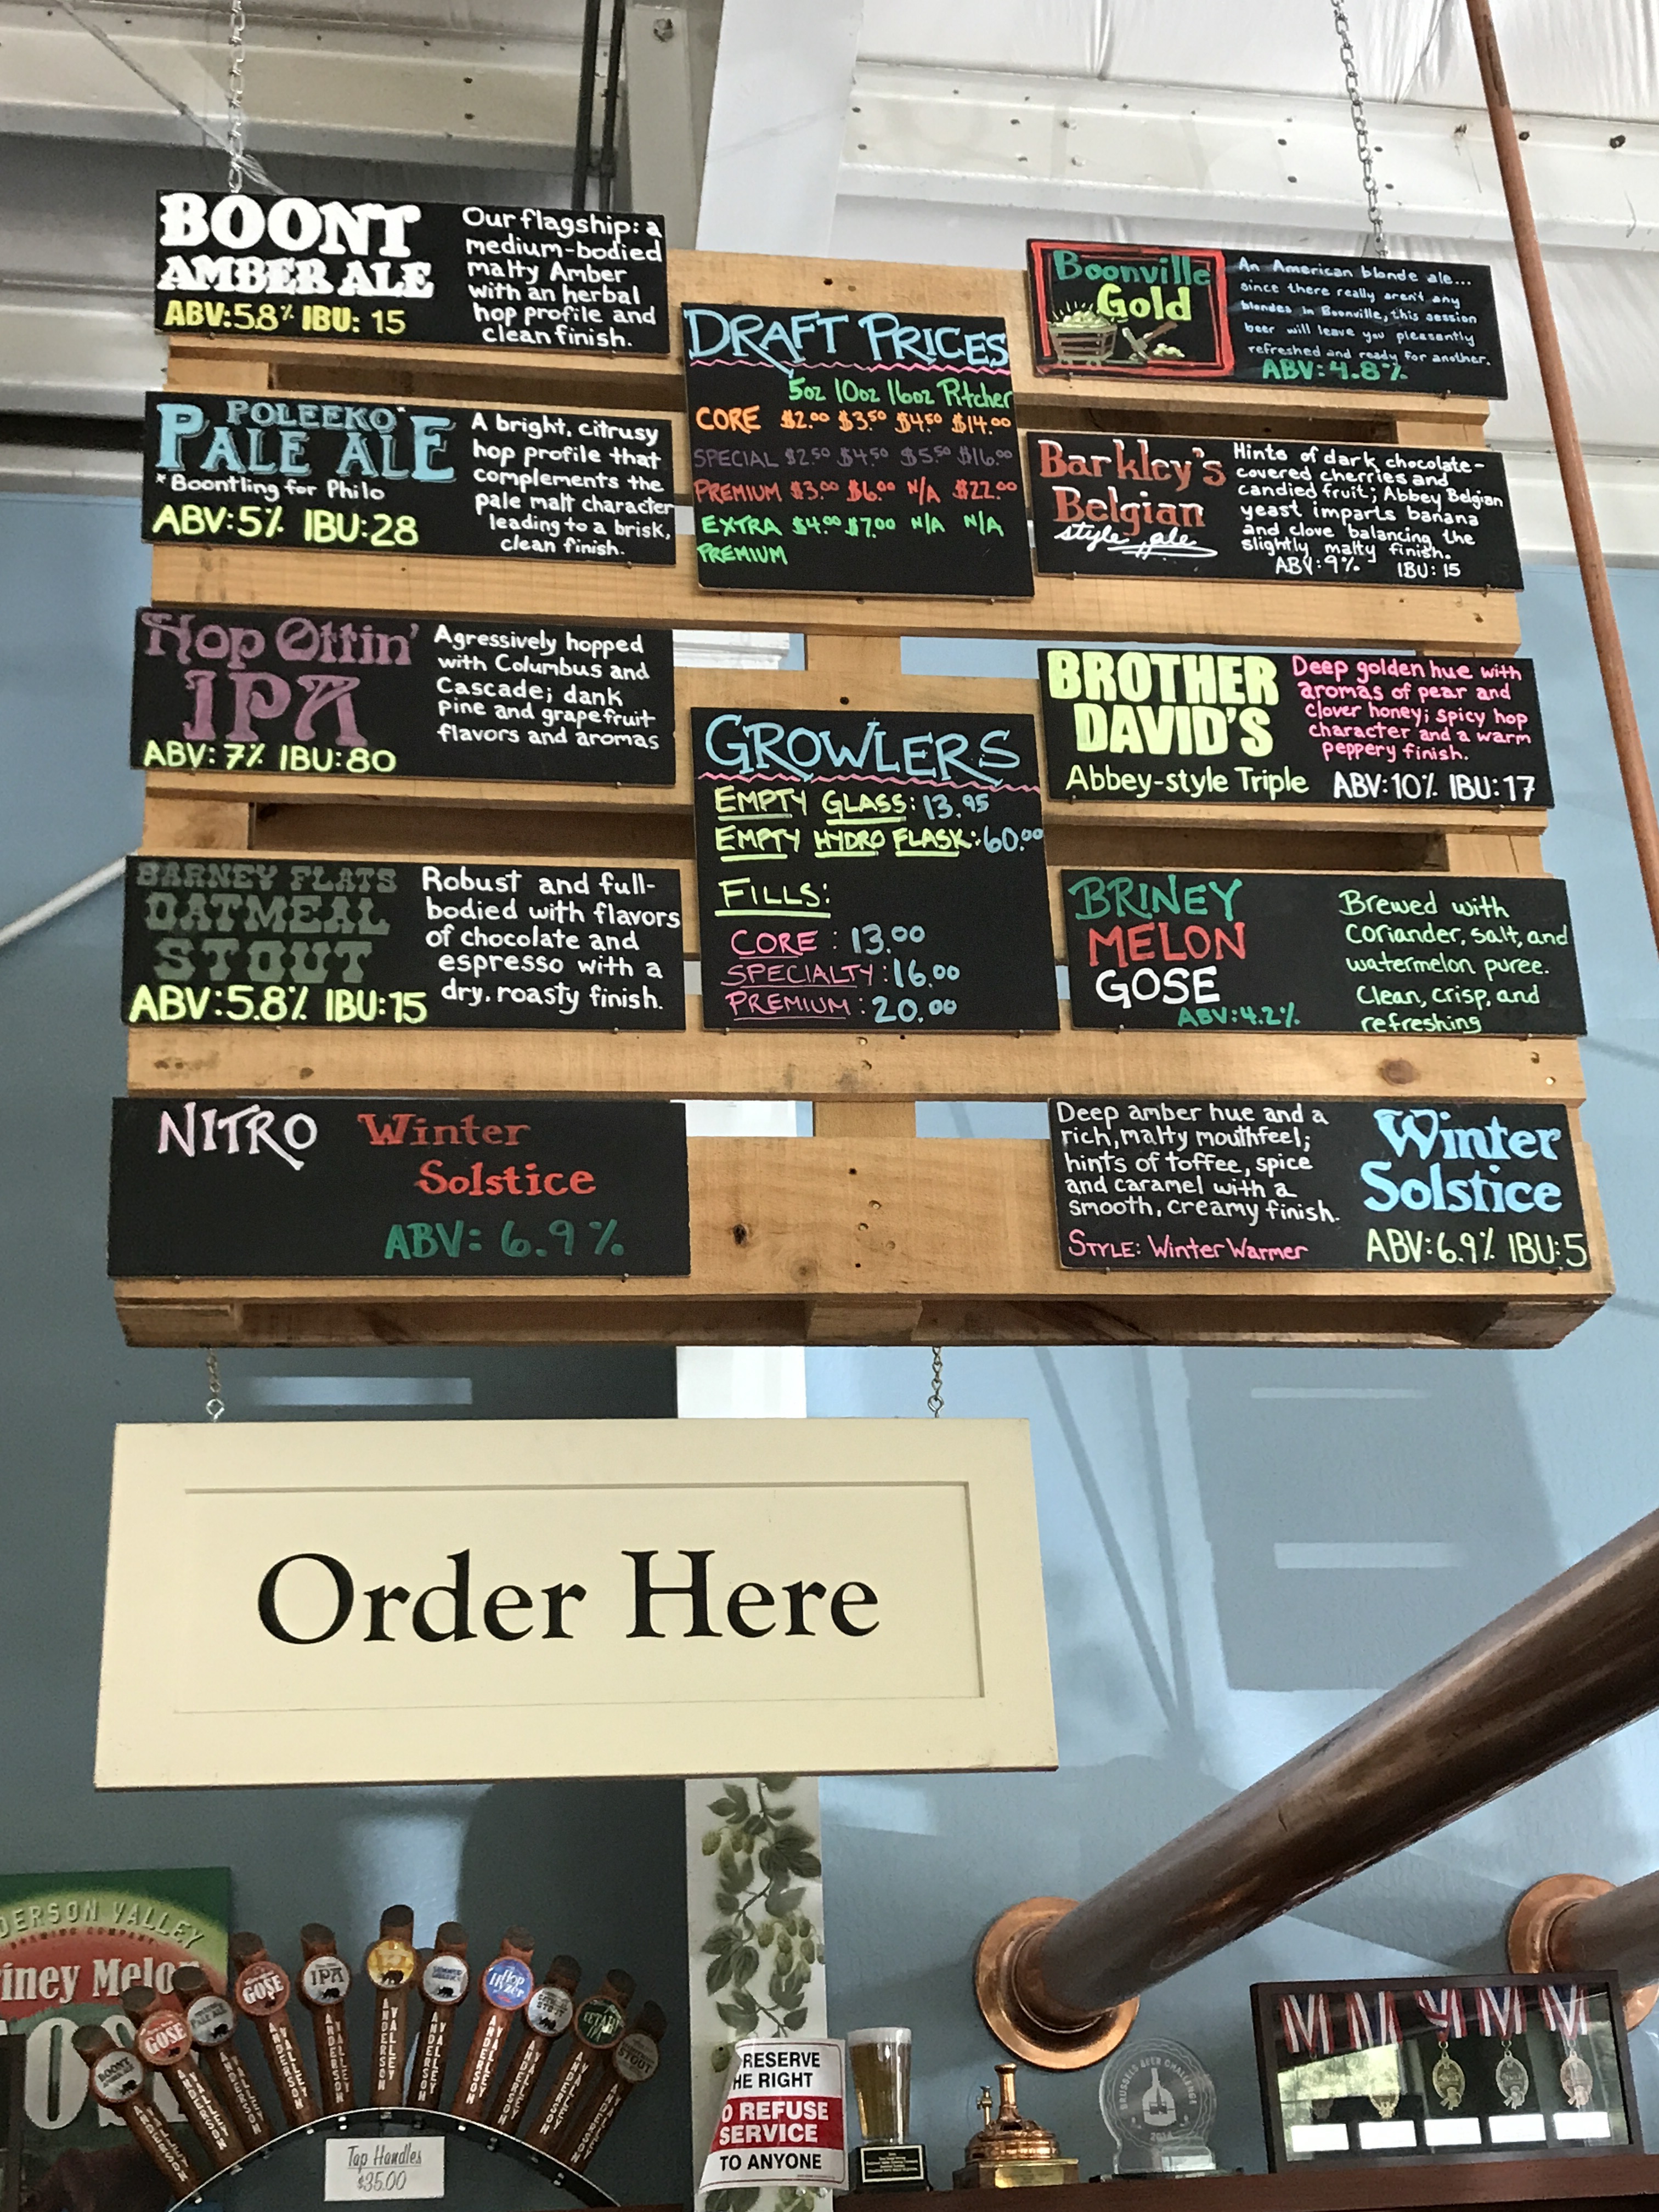 BOONT
AMBER ALE
ABV:5.8% IBU: 15
Our flagship: a
medium-bodied
malty Amber
with an herbal
hop profile and
clean finish.
POLEEKO*
PALE ALE
*Boontling for Philo
ABV:5% IBU:28
A bright, citrusy
hop profile that
complements the
pale malt character
leading to a brisk,
clean finish.
Hop Ottin'
IPA
ABV: 7% IBU:80
Agressively hopped
with Columbus and
Cascade; dank
pine and grapefruit
flavors and aromas
BARNEY FLATS
OATMEAL
STOUT
ABV:5.8% IBU:15
Robust and full-
bodied with flavors
of chocolate and
espresso with a
dry, roasty finish.
NITRO Winter
Solstice
ABV: 6.9%
DRAFT PRICES
5oz 10oz 16oz Pitcher
CORE $2.00 $3.50 $4.50 $14.00
SPECIAL $2.50 $4.50 $5.50 $16.00
PREMIUM $3.00 $6.00 N/A $22.00
EXTRA $4.00 $7.00 N/A N/A
PREMIUM
GROWLERS
EMPTY GLASS: 13.95
EMPTY HYDRO FLASK: 60.00
FILLS:
CORE : 13.00
SPECIALTY: 16.00
PREMIUM : 20.00
Boonville
Gold
An American blonde ale...
since there really aren't any
blondes in Boonville, this session
beer will leave you pleasantly
refreshed and ready for another.
ABV: 4.8%
Barkley's
Belgian
style ale
Hints of dark chocolate-
covered cherries and
candied fruit; Abbey Belgian
yeast imparts banana
and clove balancing the
slightly malty finish.
ABV: 9% IBU: 15
BROTHER
DAVID'S
Abbey-style Triple
Deep golden hue with
aromas of pear and
clover honey; spicy hop
character and a warm
peppery finish.
ABV:10% IBU:17
BRINEY
MELON
GOSE
ABV:4.2%
Brewed with
coriander, salt, and
watermelon puree.
Clean, crisp, and
refreshing
Deep amber hue and a
rich, malty mouthfeel;
hints of toffee, spice
and caramel with a
smooth, creamy finish.
STYLE: Winter Warmer
Winter
Solstice
ABV:6.9% IBU:5
Order Here
DERSON VALLEY
BREWING COMPANY
iney Melo
BOONT
GOSE
PALE ALE
GOSE
IPA
Hop
STOUT
STOUT
ANDERSON VALLEY
ANDERSON VALLEY
ANDERSON VALLEY
ANDERSON VALLEY
ANDERSON VALLEY
ANDERSON VALLEY
Tap Handles
$35.00
RESERVE
HE RIGHT
O REFUSE
SERVICE
TO ANYONE
BRUSSELS BEER CHALLENGE